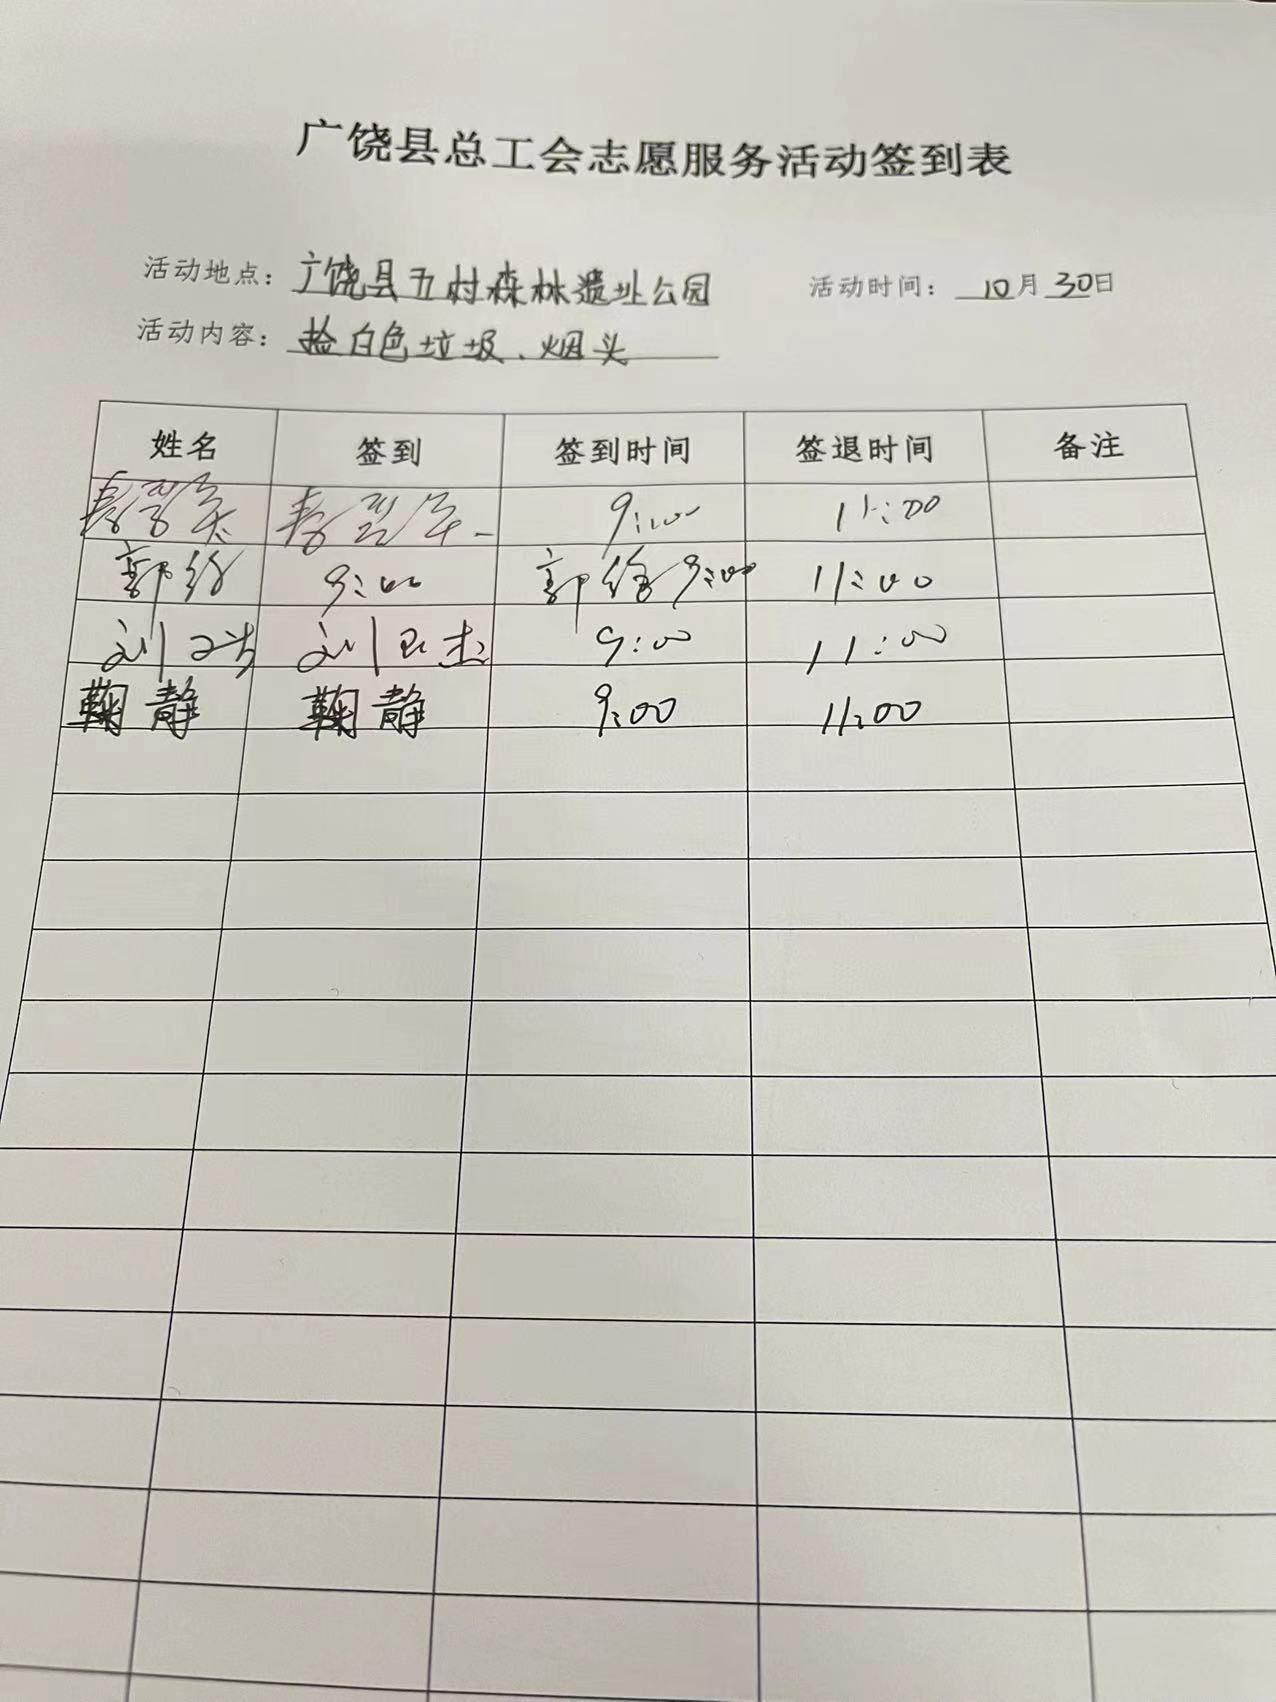 广饶县总工会志愿服务活动签到表
活动地点：广饶县五村森林遗址公园 活动时间：10月30日
活动内容：捡白色垃圾、烟头
姓名 签到 签到时间 签退时间 备注
9:00 11:00
郭 9:00 郭 9:00 11:00
刘 刘 杰 9:00 11:00
鞠静 鞠静 9:00 11:00